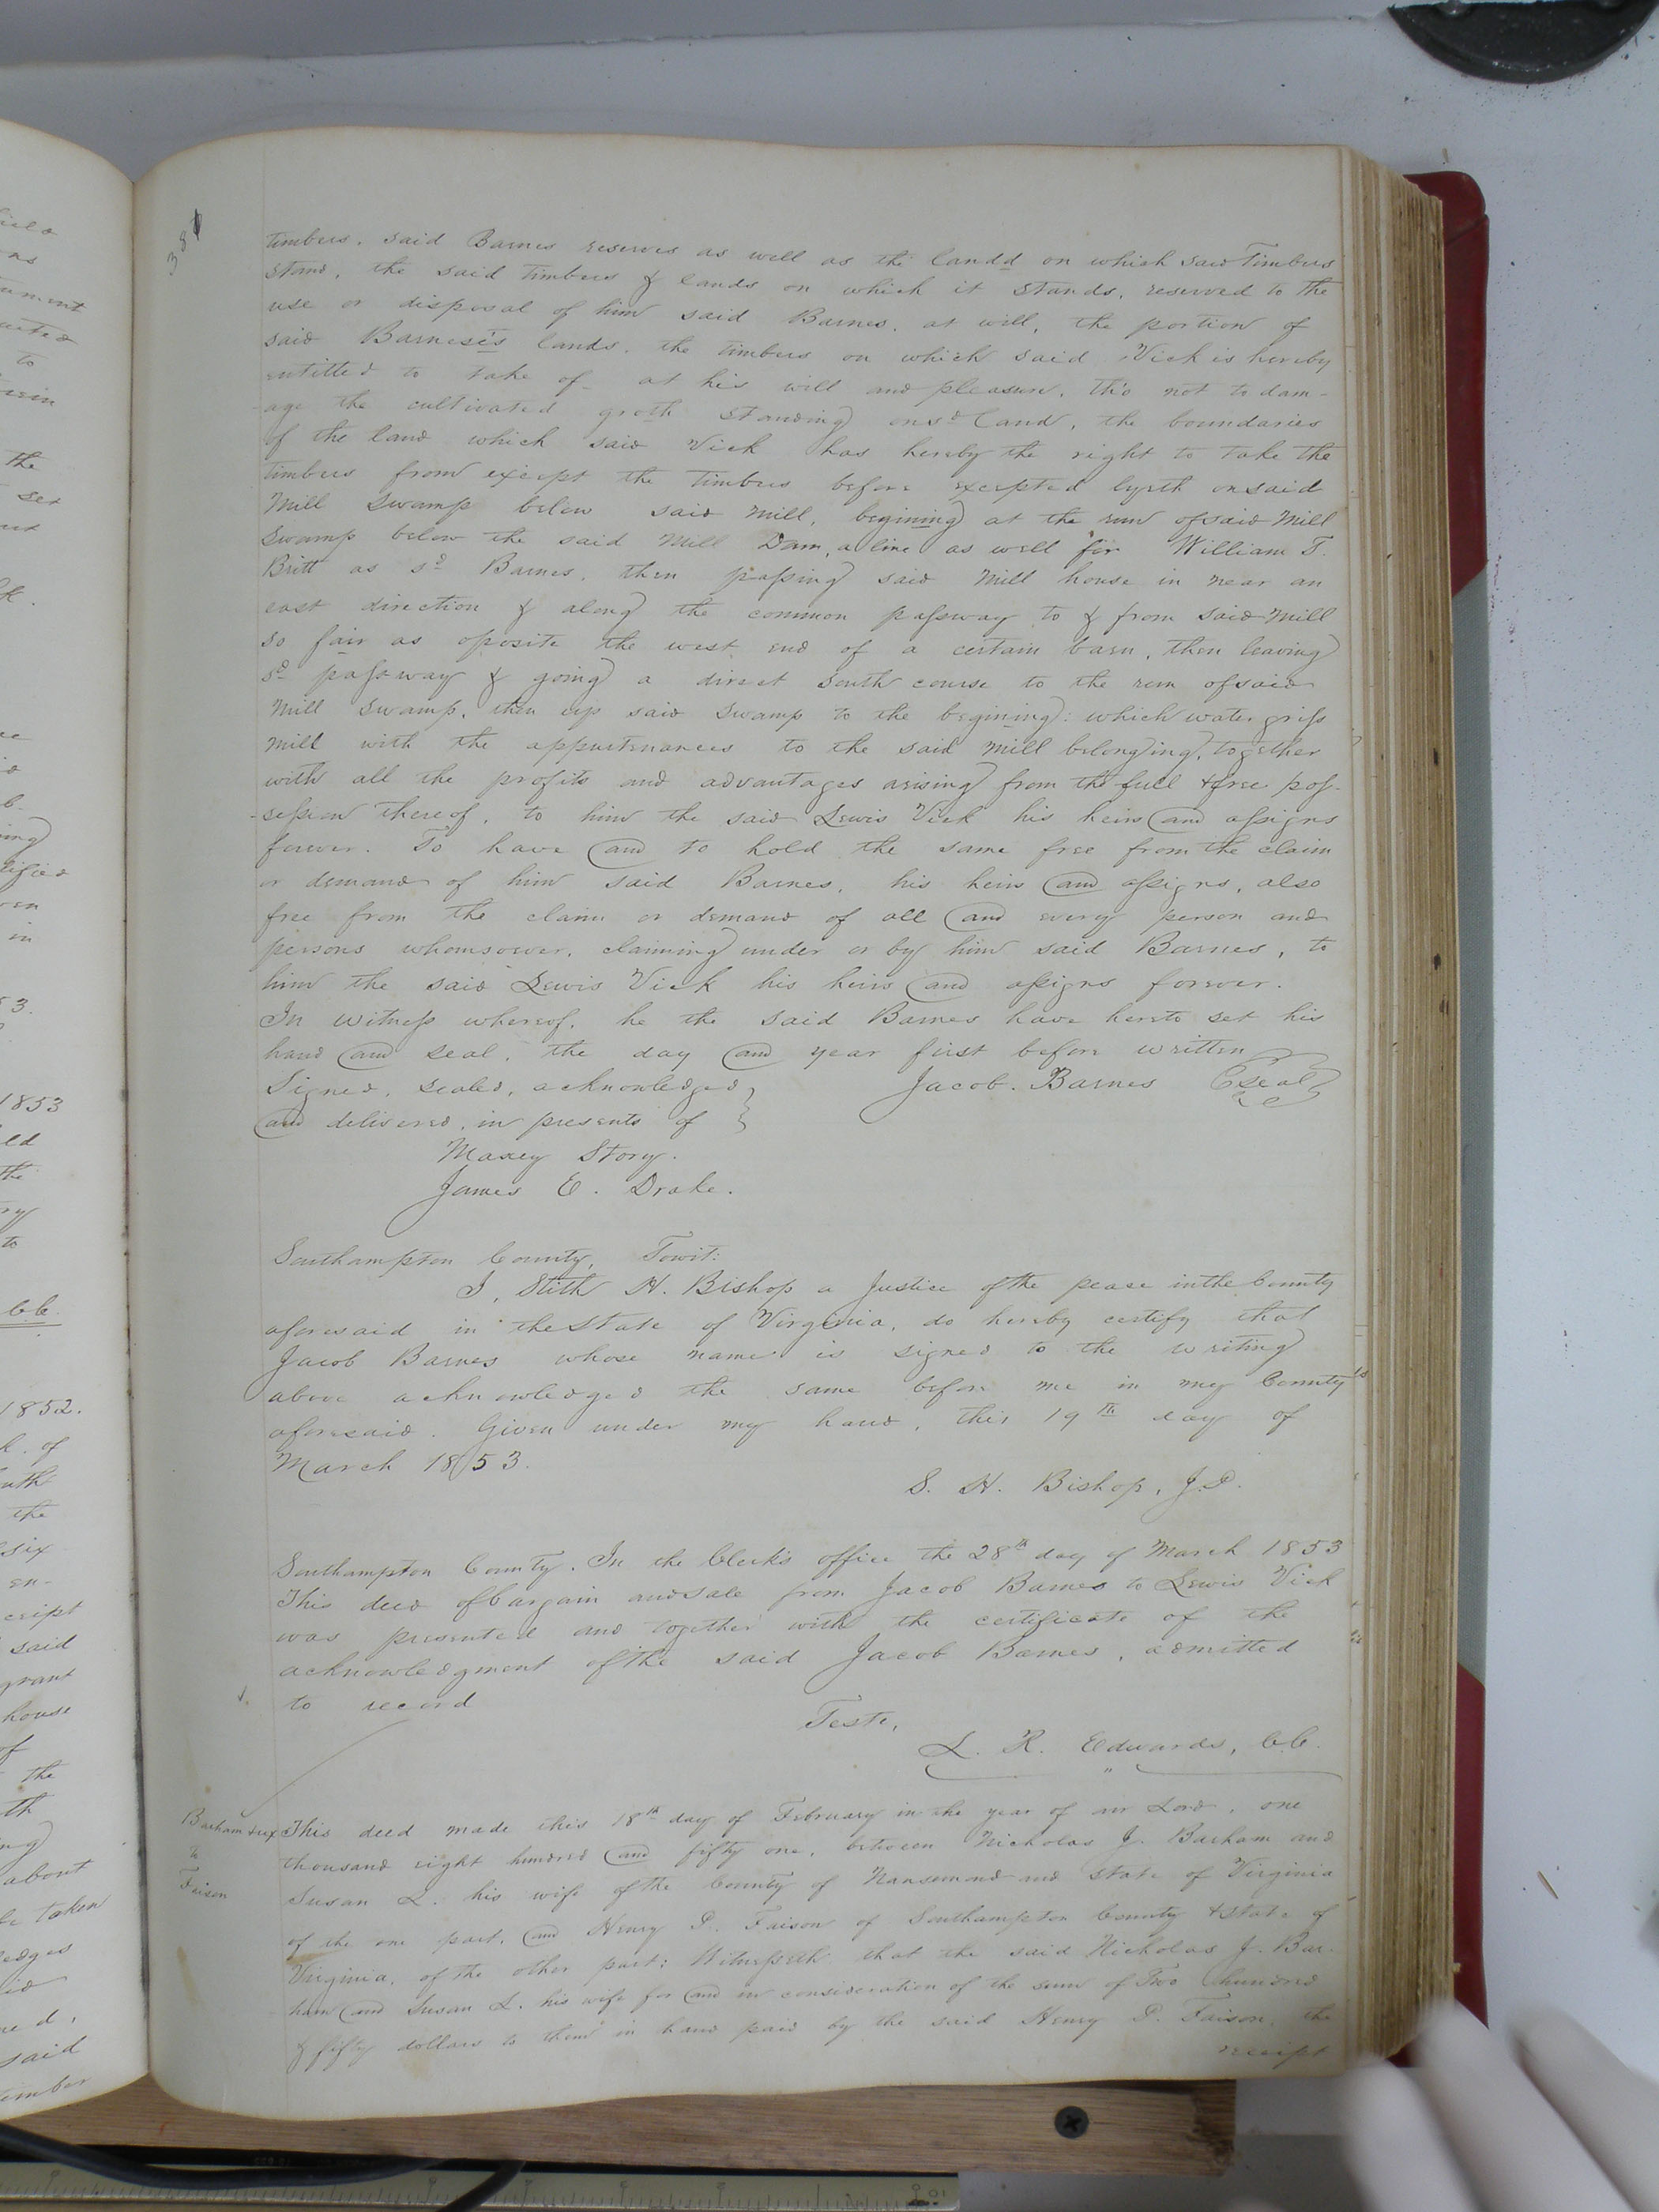 381
timbers, said Barnes reserves as well as the landd on which said Timbers
stand, the said timbers & lands on which it stands, reserved to the
use or disposal of him said Barnes, at will, the portion of
said Barnesis lands, the timbers on which said Vick is hereby
entitled to take of at his will and pleasure, tho not to dam-
age the cultivated groth standing on sd land, the boundaries
of the land which said Vick has hereby the right to take the
timbers from except the timbers before excepted lyeth on said
Mill Swamp below said Mill, begining at the run of said Mill
Swamp below the said Mill Dam, a line as well for William T.
Britt as sd Barnes, then passing said Mill house in near an
east direction & along the common passway to & from said Mill
so fair as oposite the west end of a certain barn, then leaving
sd passway & going a direct South course to the run of said
Mill Swamp, then up said Swamp to the begining: which water griss
Mill with the appurtenances to the said Mill belonging, together
with all the profits and advantages arising from the full & free pos-
-session thereof, to him the said Lewis Vick his heirs and assigns
forever. To have and to hold the same free from the claim
or demand of him said Barnes, his heirs and assigns, also
free from the claim or demand of all and every person and
persons whomsoever, claiming under or by him said Barnes, to
him the said Lewis Vick his heirs and assigns forever.
In witness whereof, he the said Barnes have hereto set his
hand and seal, the day and year first before written
Signed, sealed, acknowledged Jacob. Barnes Seal
and delivered, in presents of
Maxey Story.
James E. Drake.
Southampton County, Towit:
I, Stith H. Bishop a Justice of the pease in the County
aforesaid in the State of Virginia, do hereby certify that
Jacob Barnes whose name is signed to the writing
above acknowledged the same before me in my County
aforesaid. Given under my hand, this 19th day of
March 1853.
S. H. Bishop, J.P.
Southampton County. In the Clerk's office the 28th day of March 1853
This deed of bargain and sale from Jacob Barnes to Lewis Vick
was presented and together with the certificate of the
acknowledgment of the said Jacob Barnes, admitted
to record
Teste,
L. R. Edwards, C.C.
Barham & ux
to
Faison
This deed made this 18th day of February in the year of our Lord, one
thousand eight hundred and fifty one, between Nicholas J. Barham and
Susan L. his wife of the County of Nansemond and State of Virginia
of the one part, and Henry P. Faison of Southampton County & State of
Virginia, of the other part: Witnesseth that the said Nicholas J. Bar-
ham and Susan L. his wife for and in consideration of the sum of Two hundred
& fifty dollars to them in hand paid by the said Henry P. Faison, the
receipt